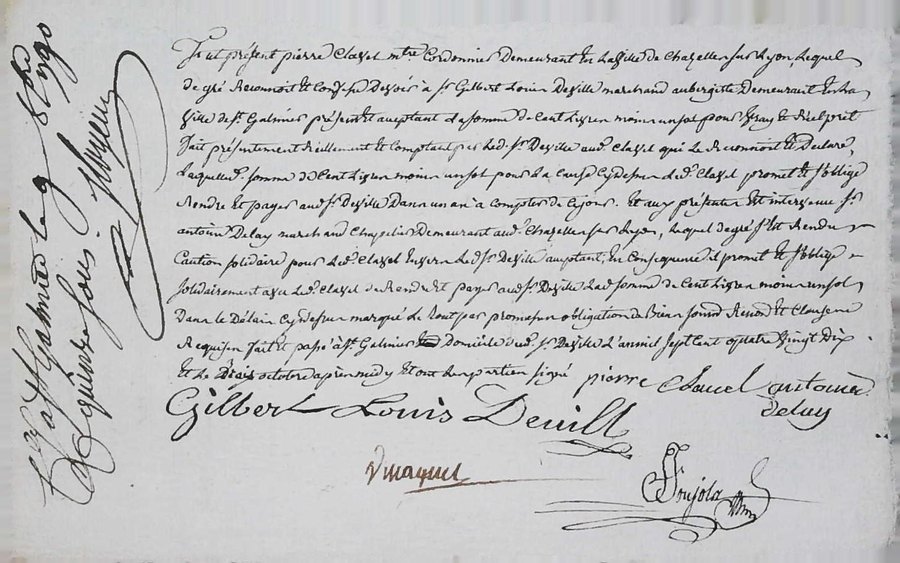 Fut présent pierre Clavel mtre Cordonnier Demeurant En La Ville de Chazelles sur Lyon, Lequel
de gré Reconnoit Et Confesse Devoir à Sr Gilbert Louis Deville marchand aubergiste Demeurant En La
Ville de St Galmier présent Et acceptant La somme De Cent Livres moins un sol pour Vray Et Réel prêt
fait présentement Réellement Et Comptant par Led. Sr Deville aud. Clavel qui Le Reconnoit Et Declare,
Laquelle d. somme de Cent Livres moins un sol pour La Cause Cydessus Led. Clavel promet Et s'oblige
Rendre Et payer aud. Sr Deville Dans un an à Compter de Ce jour. Et aux présentes Est intervenu Sr
antoine Delay marchand Chapelier Demeurant aud. Chazelles sur Lyon, Lequel de gré s'est Rendu
Caution solidaire pour Led. Clavel Envers Led. Sr Deville acceptant, En Consequence il promet Et s'oblige
solidairement avec Led. Clavel de Rendre Et payer aud. Sr Deville Lad. somme de Cent Livres moins un sol
Dans Le Délais Cydessus marqué Le tout par promesses obligation de Biens Renon Et Clauses
Requises fait Et passé à St Galmier Domicile dud. Sr Deville L'an mil sept Cent quatre Vingt Dix
Et Le octobre après midy Et ont Les parties signé pierre Clavel antoine
delay
Gilbert Louis Deville
Pujola
a St Galmier Le 9 8bre 1790
quinze sols